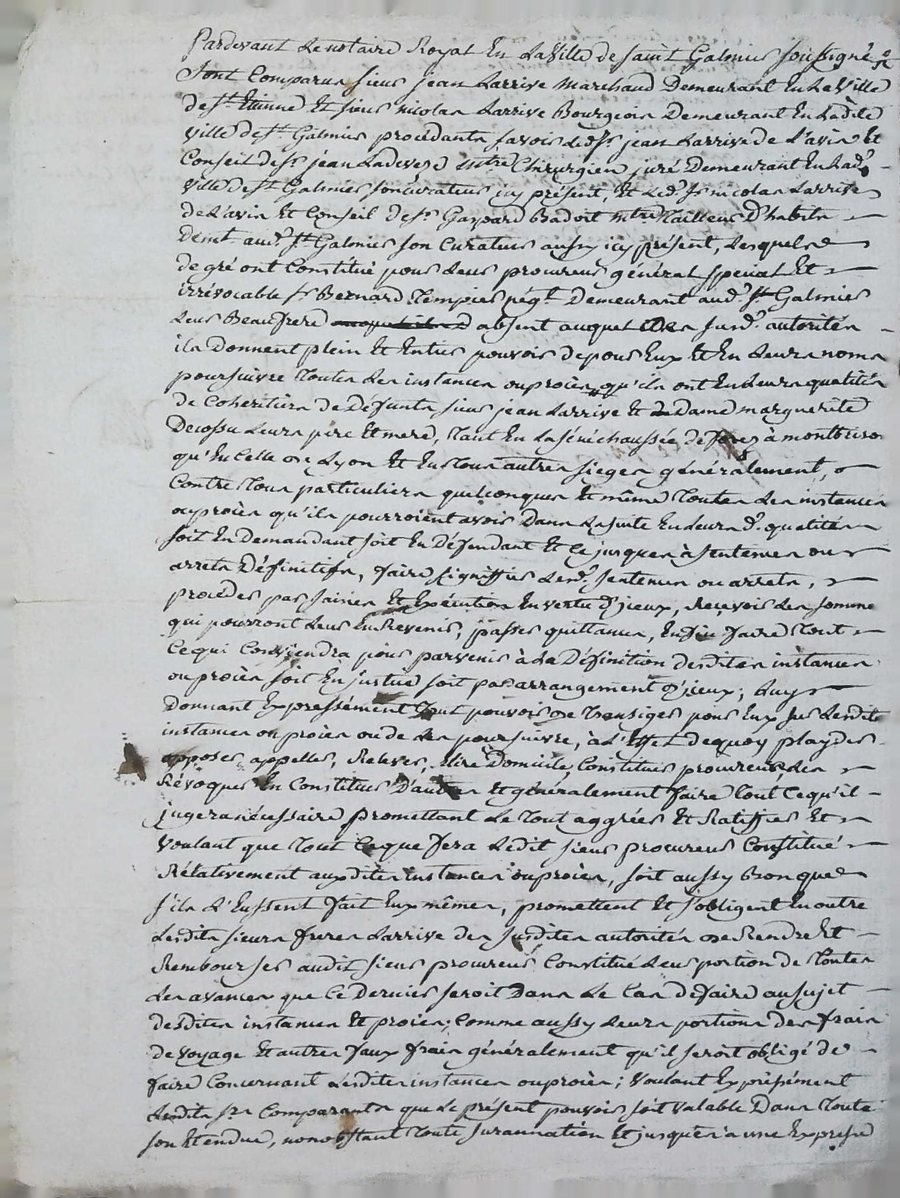 Pardevant Le notaire Royal En la Ville de saint Galmier soussigné
sont Comparus sieur jean Larrive Marchand Demeurant En la Ville
de st. Etienne Et sieur nicolas Larrive Bourgeois Demeurant En ladite
Ville de st. Galmier procedants savoir led. sr. jean Larrive de L'avis Et
Conseil de sr. jean Ladevese mtre. Chirurgien juré Demeurant En lad.
Ville de st. Galmier son curateur icy présent, Et Led. sr. nicolas Larrive
de L'avis Et Conseil de sr. Gaspard Badoit mtre. Tailleur D'habits
demt. aud. st. Galmier son Curateur aussy icy présent, Lesquels
de gré ont Constitué pour Leur procureur général spécial Et
irrévocable sr. Bernard Tempier négt. Demeurant aud. st. Galmier
Leur Beaufrere absent auquel Des susd. autorités
ils Donnent plein Et Entier pouvoir de pour Eux Et En Leurs noms
poursuivre Toutes Les instances ou procès qu'ils ont En Leurs qualités
de Coheritiers de Défunts sieur jean Larrive Et Dame marguerite
Decossu Leurs père Et mere, Tant En la sénéchaussée de forez à montbrison
qu'En Celle de Lyon Et En tous autres sieges généralement,
Contre Tous particuliers quelconques Et même Toutes Les instances
ou procès qu'ils pourroient avoir Dans La suite En Leurs d. qualités
soit En Demandant soit En Défendant Et Ce jusques à sentences ou
arrets Définitifs, faire signiffier Lesd. sentences ou arrets,
procéder par saisies Et Exécution En vertu D'iceux, Recevoir Les sommes
qui pourront Leur En Revenir, passer quittances, Enfin faire Tout
Ce qui Conviendra pour parvenir à La Définition desdites instances
ou procès soit En justice soit par arrangement D'iceux; Luy
Donnant Expressément Tout pouvoir de Transiger pour Eux sur Lesdits
instances ou procès ou de Les poursuivre, à L'Effet Dequoy playder
opposer, appeller, Relever, Elire Domicile, Constituer procureurs, Les
Révoquer En Constituer D'autres Et généralement faire Tout Ce qu'il
jugera nécessaire promettant Le Tout aggréer Et Ratiffier Et
Voulant que Tout Ce que fera Ledit sieur procureur Constitué
Rélativement auxdites instances ou procès, soit aussy Bon que
s'ils L'Eussent fait Eux mêmes, promettent Et s'obligent En outre
Lesdits sieurs freres Larrive des susdites autorités de Rendre Et
Rembourser audit sieur procureur Constitué Leur portion de Toutes
Les avances que Ce Dernier seroit Dans Le Cas de faire au sujet
desdites instances Et procès; Comme aussy Leurs portions des frais
de voyage Et autres faux frais généralement qu'il seroit obligé de
faire Concernant Lesdites instances ou procès; Voulant Expressément
Lesdits srs Comparants que Le présent pouvoir soit valable Dans Toute
son Etendue, nonobstant Toute surannation Et jusques à une Expresse